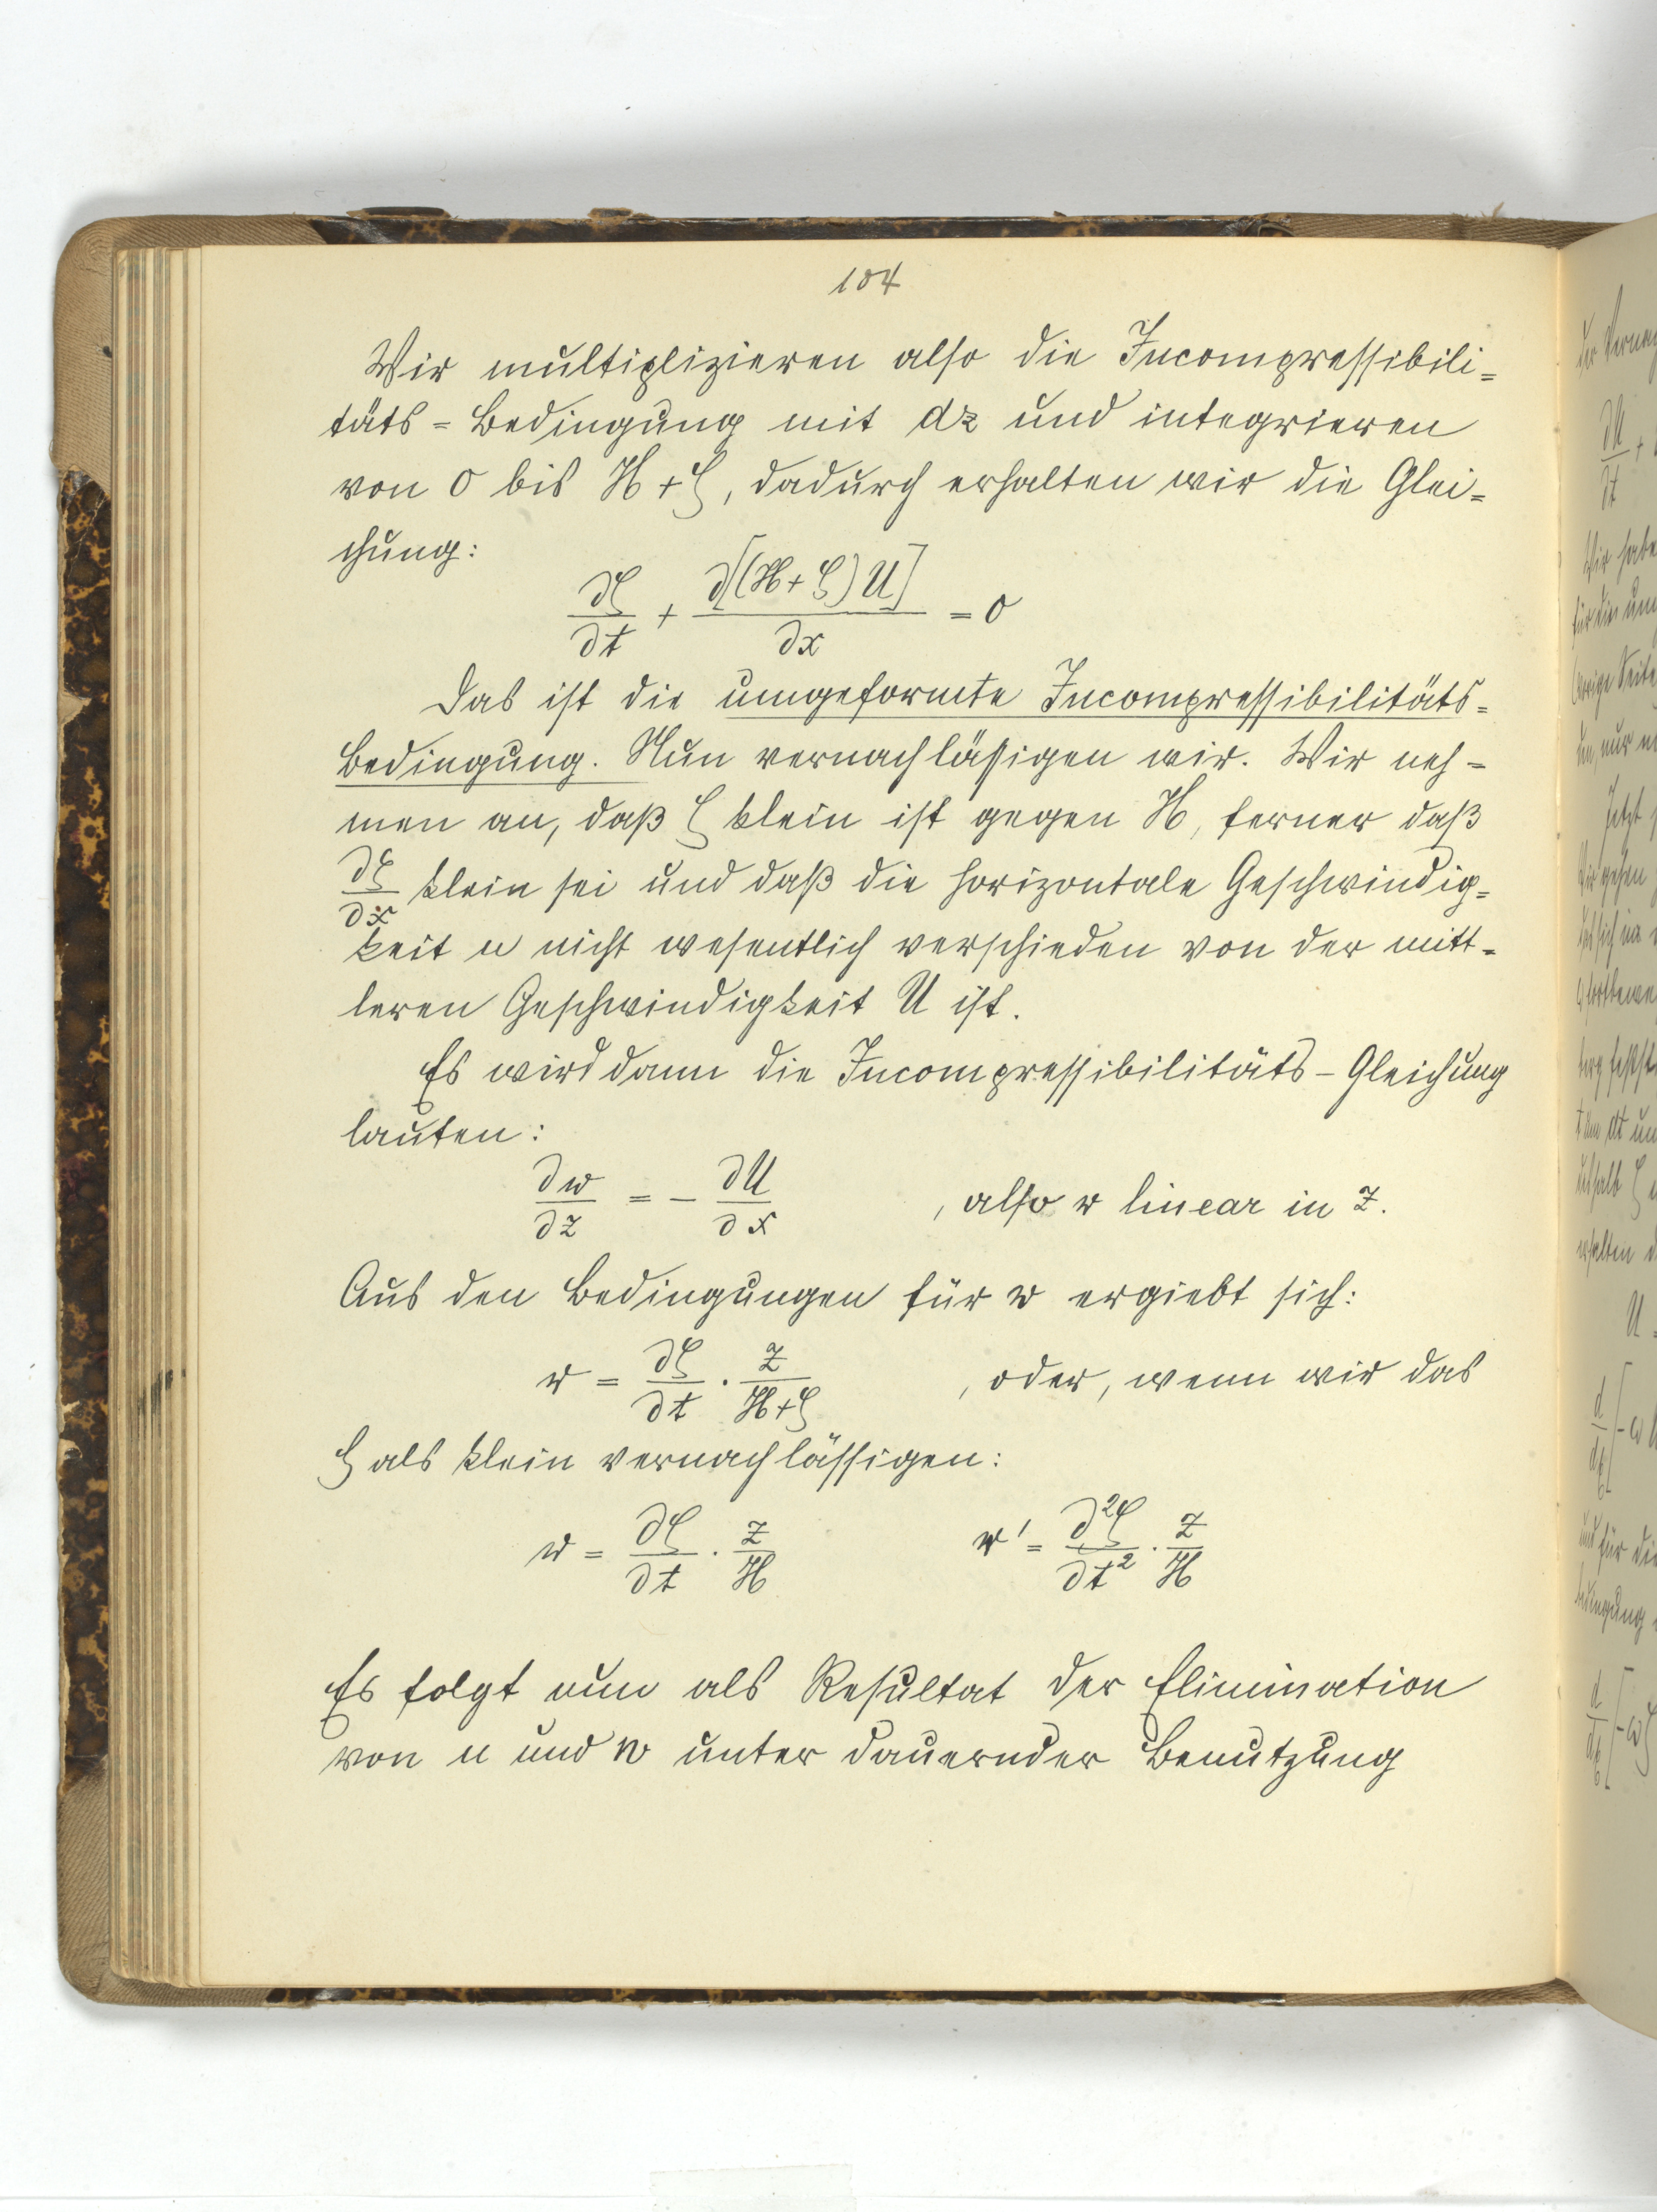 104
Wir multiplizieren also die Incompressibili=
täts=Bedingung mit dz und integrieren
von 0 bis H+ζ, dadurch erhalten wir die Glei=
chung:
∂ζ/∂t + ∂[(H+ζ)U]/∂x = 0
Das ist die umgeformte Incompressibilitäts=
Bedingung. Nun vernachlässigen wir. Wir neh=
men an, daß ζ klein ist gegen H, ferner daß
∂ζ/∂x klein sei und daß die horizontale Geschwindig=
keit u nicht wesentlich verschieden von der mitt=
leren Geschwindigkeit U ist.
Es wird dann die Incompressibilitäts-Gleichung
lauten:
∂w/∂z = - ∂U/∂x , also w linear in z.
Aus den Bedingungen für w ergiebt sich:
w = ∂ζ/∂t · z/(H+ζ) , oder, wenn wir das
ζ als klein vernachlässigen:
w = ∂ζ/∂t · z/H w' = ∂²ζ/∂t² · z/H
Es folgt nun als Resultat der Elimination
von u und w unter dauernder Benutzung